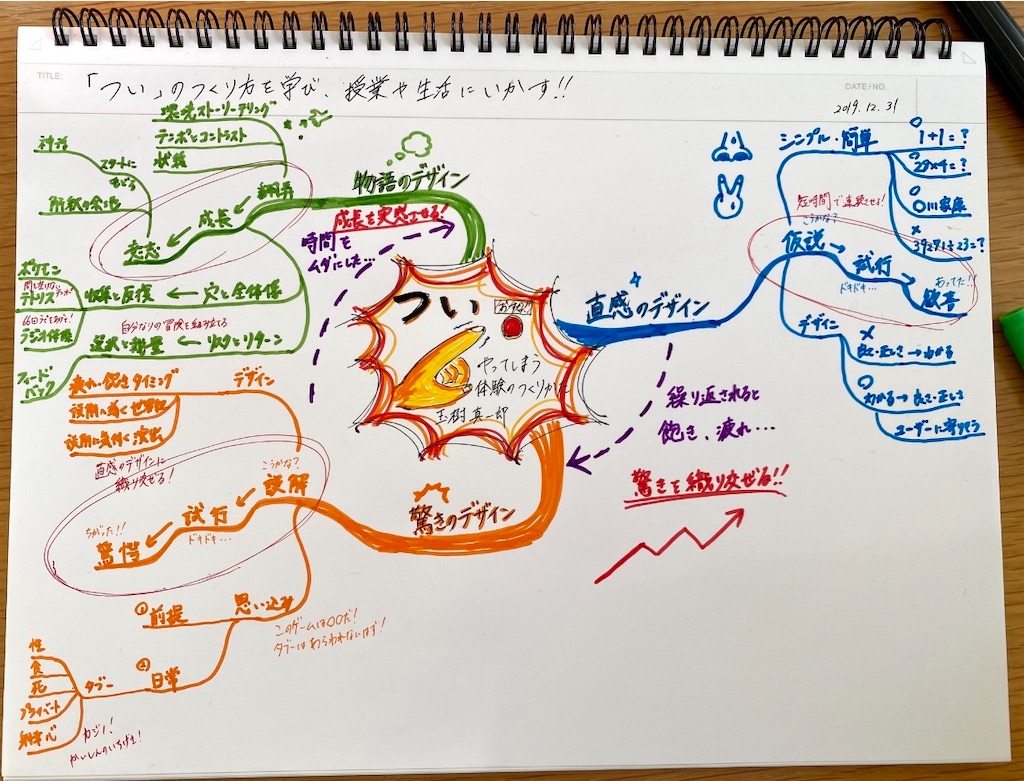 TITLE:
「つい」のつくり方を学び、授業や生活にいかす!!
DATE/NO.
2019.12.31
つい
おすな!!
やってしまう
体験のつくりかた
玉樹真一郎
直感のデザイン
シンプル・簡単
1+1=?
短時間で連発させる!
こうかな?
仮説
試行
ドキドキ…
あってた!!
歓喜
デザイン
良さ・正しさ→わかる
わかる→良さ・正しさ
ユーザーに寄りそう
繰り返されると
飽き、疲れ…
驚きを織り交ぜる!!
驚きのデザイン
こうかな?
誤解
試行
ドキドキ…
ちがった!!
驚愕
直感のデザインに
織り交ぜる!
デザイン
疲れ・飽きタイミング
思い込み
①前提
②日常
このゲームは〇〇だ!
タブーはあらわれないはず!
タブー
性
食
死
プライベート
射幸心
カジノ!
かいしんのいちげき!
時間を
ムダにした…
成長を実感させる!
物語のデザイン
翻弄
成長
意志
環境ストーリーテリング
テンポとコントラスト
神話
スタートに
もどる
穴と全体像
収集と反復
ポケモン
テトリス
ラジオ体操
自分なりの冒険を組み立てる
リスクとリターン
フィード
バック